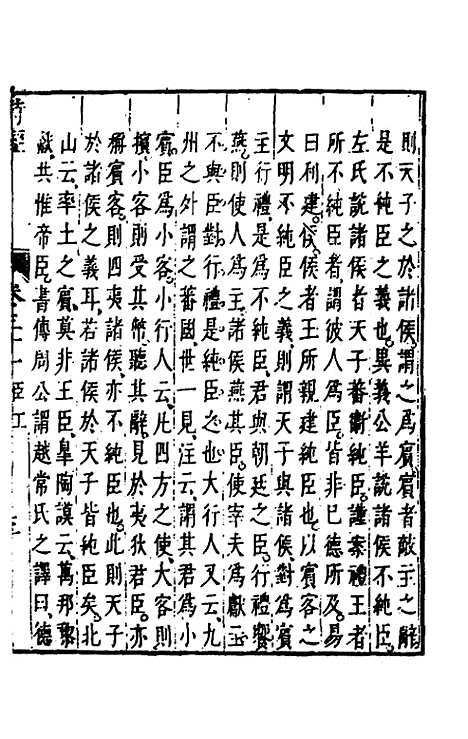 則天子之於諸侯謂之爲賓賓者敵主之辭
是不純臣之義也異義公羊說諸侯不純臣
左氏說諸侯者天子蕃衛純臣謹案禮王者
所不純臣者謂彼人爲臣皆非己德所及易
曰利建侯侯者王所親建純臣也以賓客之
文明不純臣之義則謂天子與諸侯對爲賓
主行禮是爲不純臣君與朝廷之臣行禮饗
燕則使人爲主諸侯燕其臣使宰夫爲獻主
不與臣對行禮是純臣也大行人又云九
州之外謂之蕃國世一見注云謂其君爲小
賓臣爲小客小行人云凡四方之使大客則
擯小客則受其幣聽其辭見於夷狄君臣亦
稱賓客則四夷諸侯亦不純臣也此則天子
於諸侯之義耳若諸侯於天子皆純臣矣北
山云率土之賓莫非王臣臯陶謨云萬邦黎
獻共惟帝臣書傳周公謂越常氏之譯曰德
詩經 卷三十 臣工